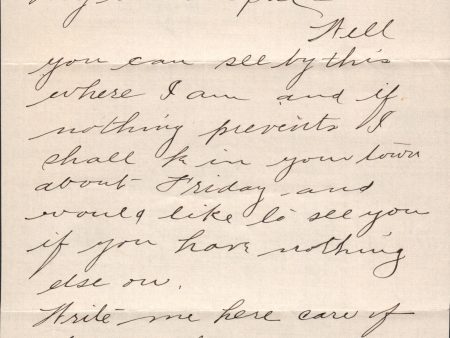 Well
you can see by this
where I am and if
nothing prevents I
shall be in your town
about Friday and
would like to see you
if you have nothing
else on.
Write me here care of